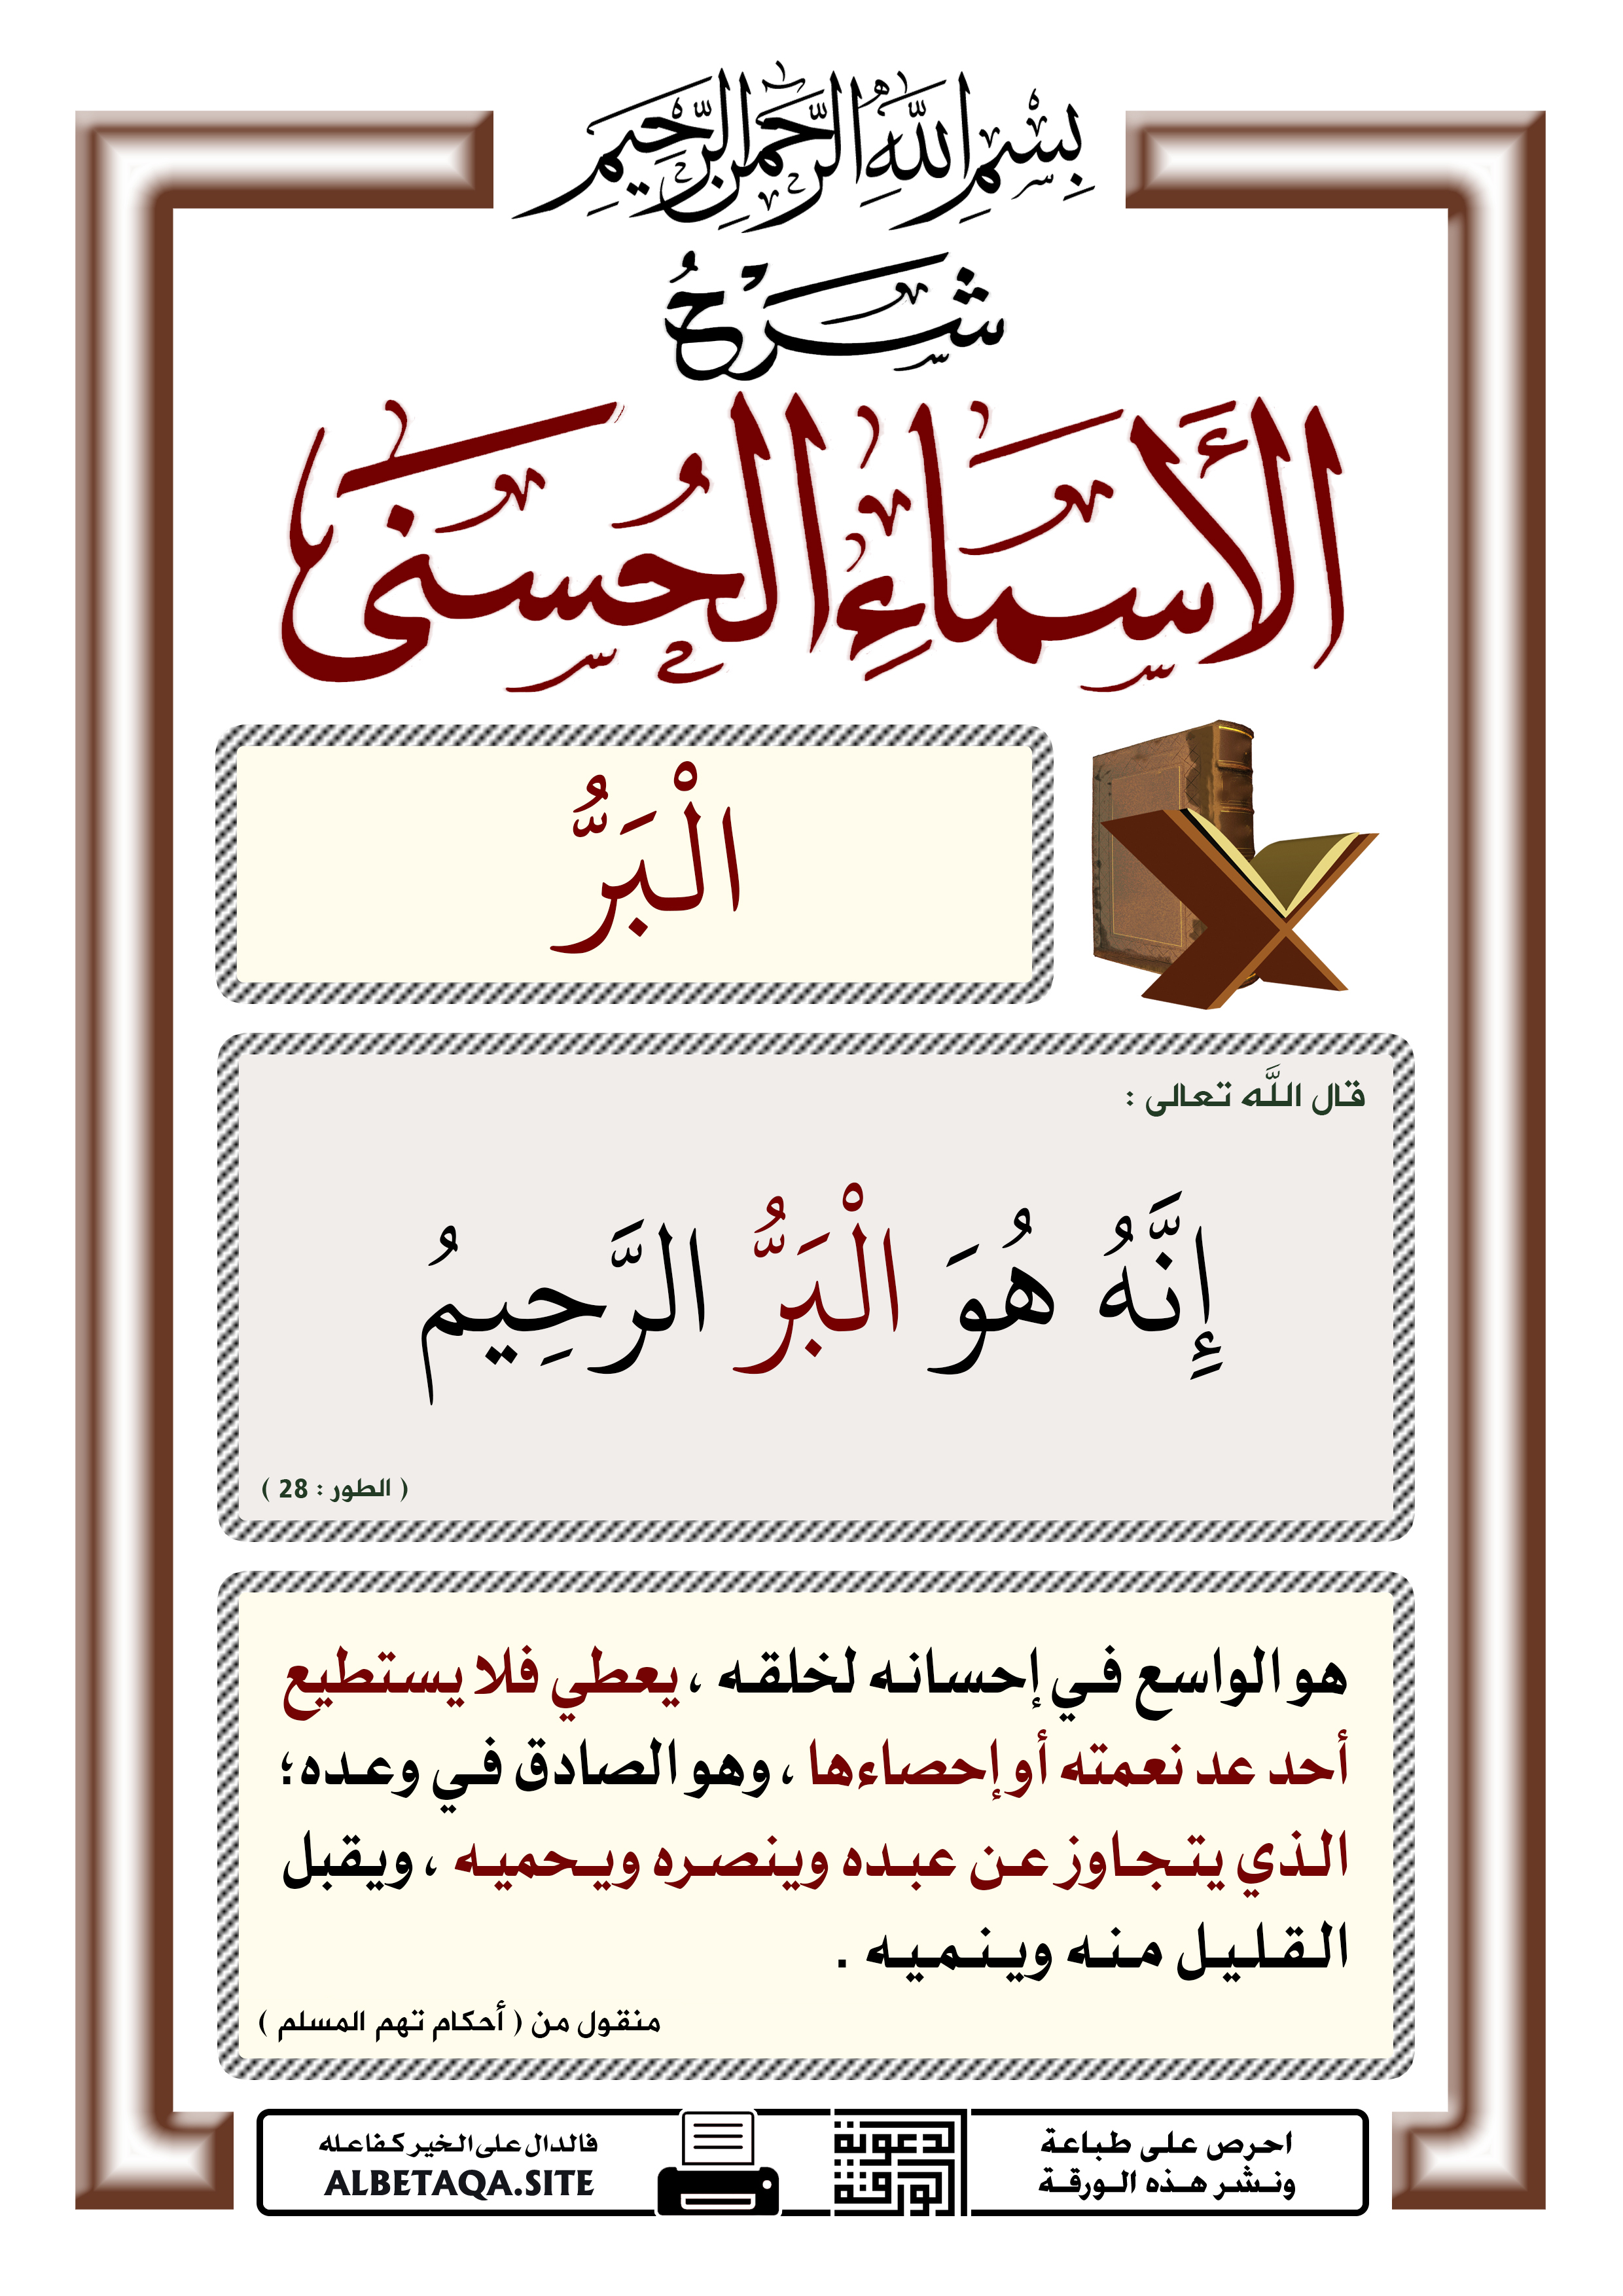 بِسْمِ اللَّهِ الرَّحْمَٰنِ الرَّحِيمِ
شَرْحُ
الأَسْمَاءِ الحُسْنَى
الْبَرُّ
قال اللَّه تعالى :
إِنَّهُ هُوَ الْبَرُّ الرَّحِيمُ
( الطور : 28 )
هو الواسع في إحسانه لخلقه ، يعطي فلا يستطيع
أحد عد نعمته أو إحصاءها ، وهو الصادق في وعده ؛
الذي يتجاوز عن عبده وينصره ويحميه ، ويقبل
القليل منه وينميه .
منقول من ( أحكام تهم المسلم )
احرص على طباعة
ونشر هذه الورقة
الورقة الدعوية
فالدال على الخير كفاعله
ALBETAQA.SITE